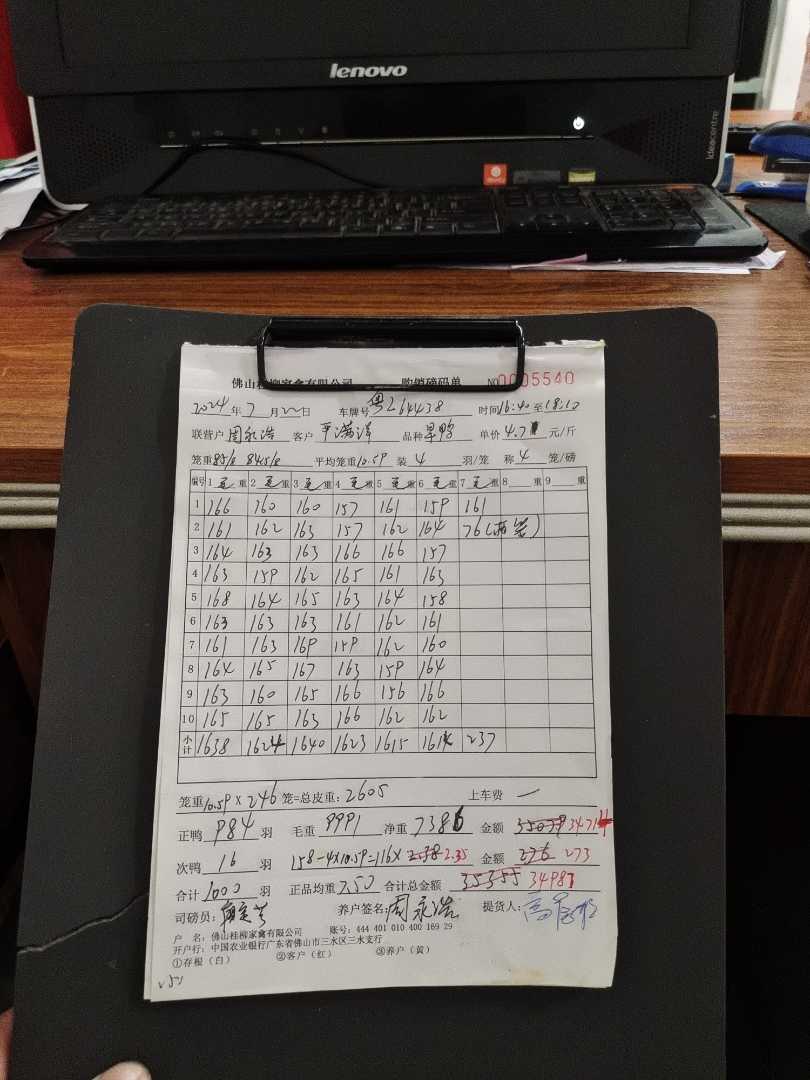 lenovo
ideacentre
佛山桂柳家禽有限公司 购销磅码单 NO 0005540
2024年 7月 22日 车牌号 粤L64438 时间 16:40 至 18:10
联营户 周永浩 客户 品种 旱鸭 单价 4.7 元/斤
笼重 85/8 84.5/8 平均笼重 10.59 装 4 羽/笼 称 4 笼/磅
编号 1 毛 重 2 毛 重 3 毛 重 4 毛 重 5 毛 重 6 毛 重 7 毛 重 8 重 9 重
1 166 160 160 157 161 159 161
2 161 162 163 157 162 164 76(两笼)
3 164 163 163 166 166 157
4 163 159 162 165 161 163
5 168 164 165 163 164 158
6 163 163 163 161 162 161
7 161 163 169 159 162 160
8 164 165 167 163 159 164
9 163 160 165 166 156 166
10 165 165 163 166 162 162
小计 1638 1624 1640 1623 1615 1614 237
笼重 10.59 × 246 笼=总皮重: 2605 上车费 —
正鸭 984 羽 毛重 9991 净重 7386 金额 35039 34714
次鸭 16 羽 158-4×10.59=116× 2.38 2.35 金额 276 273
合计 1000 羽 正品均重 7.50 合计总金额 35355 34987
司磅员: 养户签名: 周永浩 提货人:
户 名: 佛山桂柳家禽有限公司 账号: 444 401 010 400 169 29
开户行: 中国农业银行广东省佛山市三水区三水支行
①存根(白) ②客户(红) ③养户(黄)